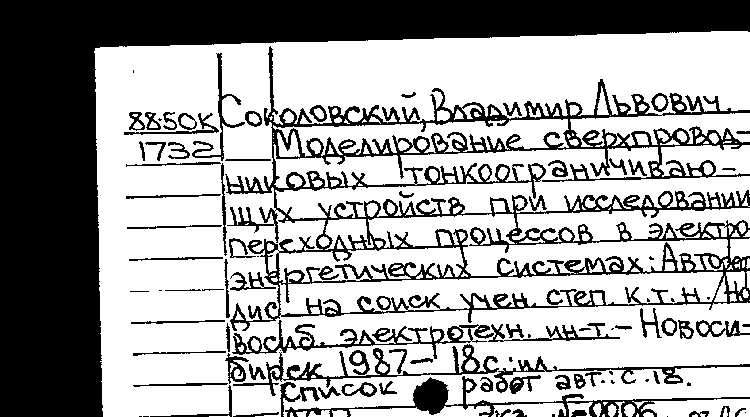 88-50К Соколовский, Владимир Львович.
1732 Моделирование сверхпровод-
никовых тонкоограничиваю-
щих устройств при исследовании
переходных процессов в электро
энергетических системах: Автореф
дис. на соиск. учен. степ. к.т.н. / Но
восиб. электротехн. ин-т. - Новоси-
бирск, 1987 - 18с.: ил.
Список работ авт.: с. 18.